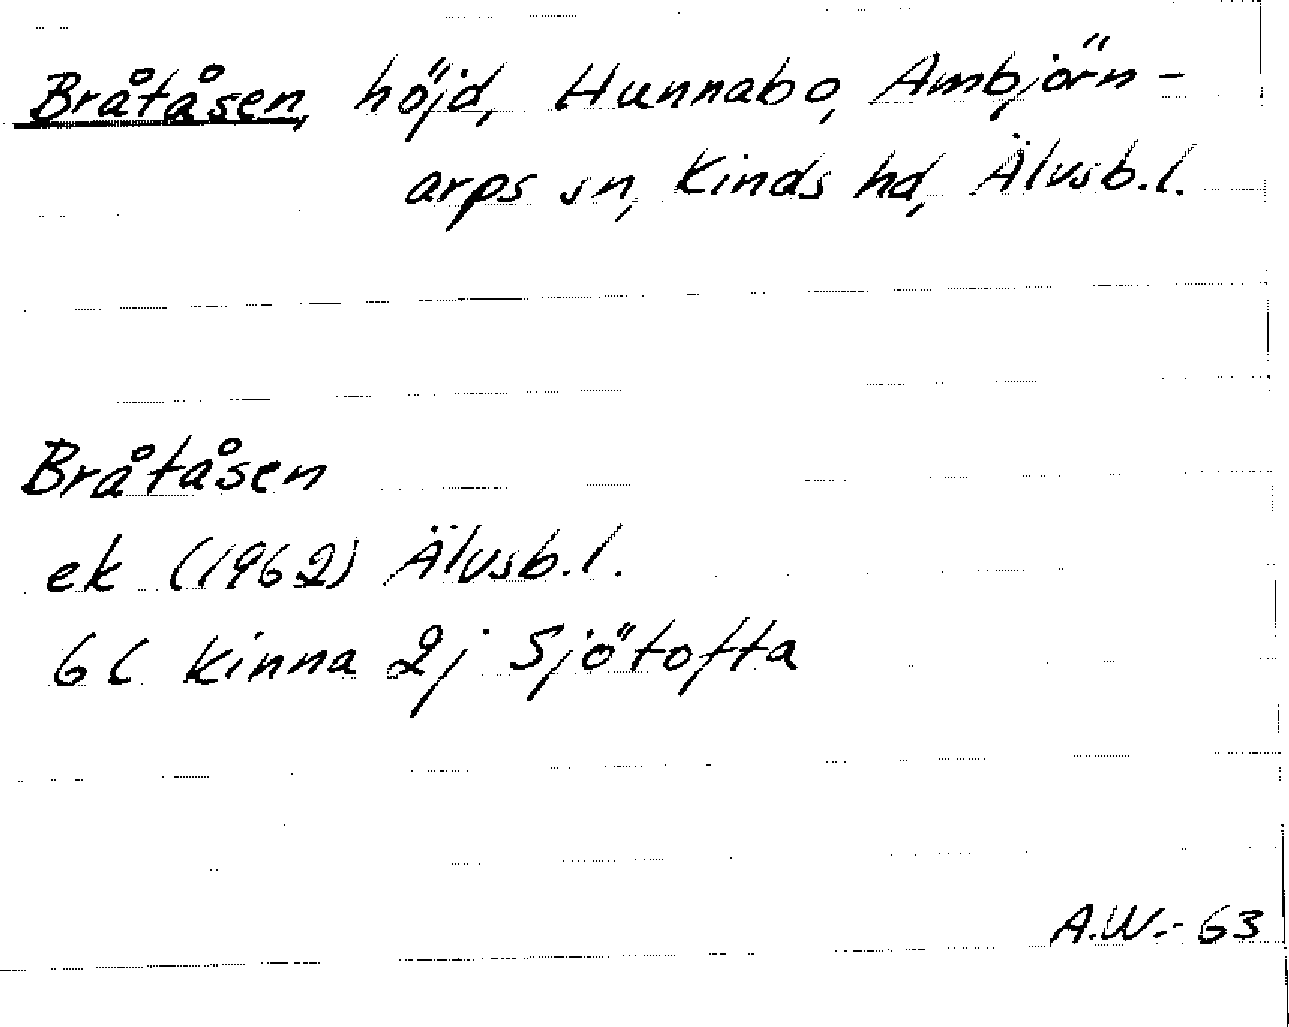 Bråtåsen, höjd, Hunnabo, Ambjörn-
arps sn, Kinds hd, Älvsb.l.
Bråtåsen
ek (1962) Älvsb.l.
6C Kinna 2j Sjötofta
A.W.-63